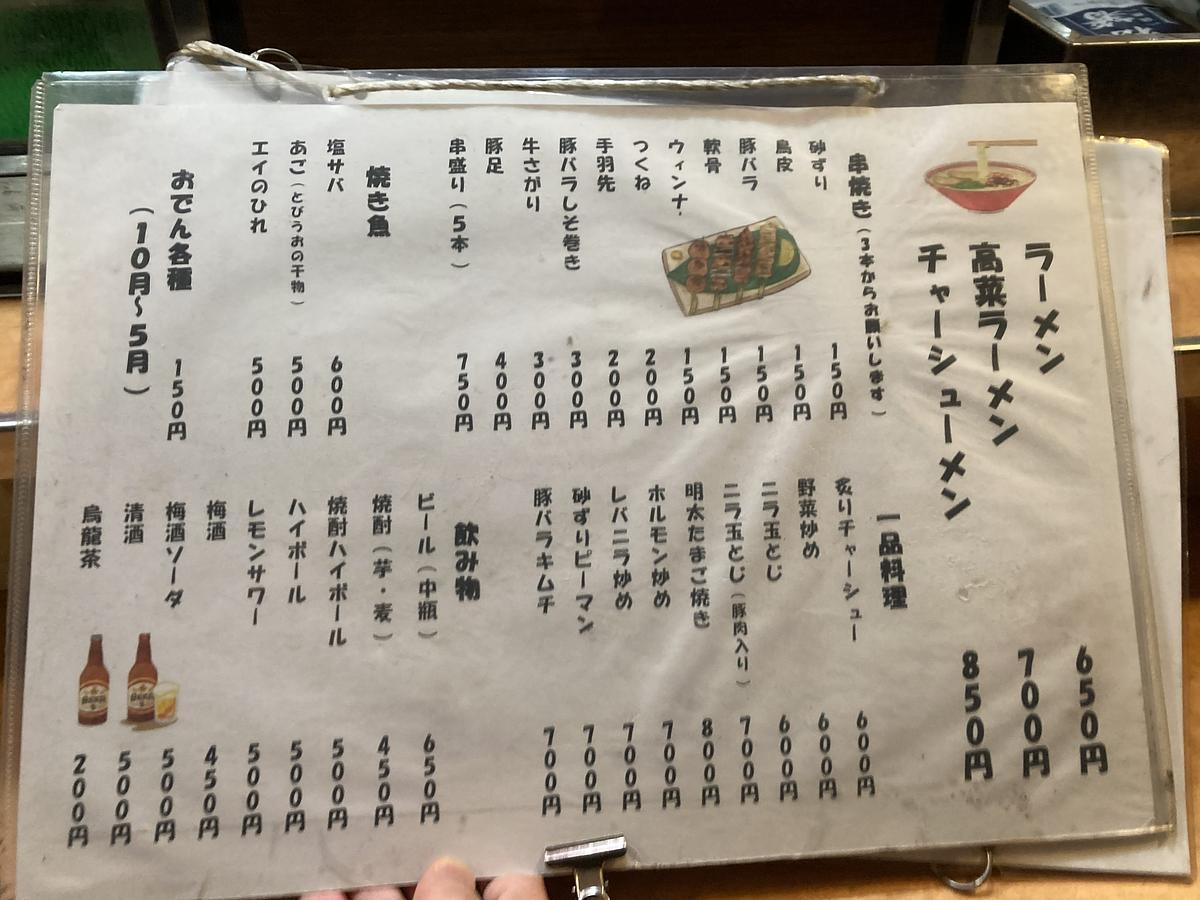 ラーメン 650円
高菜ラーメン 700円
チャーシューメン 850円
串焼き（3本からお願いします）
砂ずり 150円
鳥皮 150円
豚バラ 150円
軟骨 150円
ウィンナー 150円
つくね 200円
手羽先 200円
豚バラしそ巻き 300円
牛さがり 300円
豚足 400円
串盛り（5本） 750円
焼き魚
塩サバ 600円
あご（とびうおの干物） 500円
エイのひれ 500円
おでん各種 150円
（10月～5月）
一品料理
炙りチャーシュー 600円
野菜炒め 600円
ニラ玉とじ 600円
ニラ玉とじ（豚肉入り） 700円
明太たまご焼き 800円
ホルモン炒め 700円
レバニラ炒め 700円
砂ずりピーマン 700円
豚バラキムチ 700円
飲み物
ビール（中瓶） 650円
焼酎（芋・麦） 450円
焼酎ハイボール 500円
ハイボール 500円
レモンサワー 500円
梅酒 450円
梅酒ソーダ 500円
清酒 500円
烏龍茶 200円